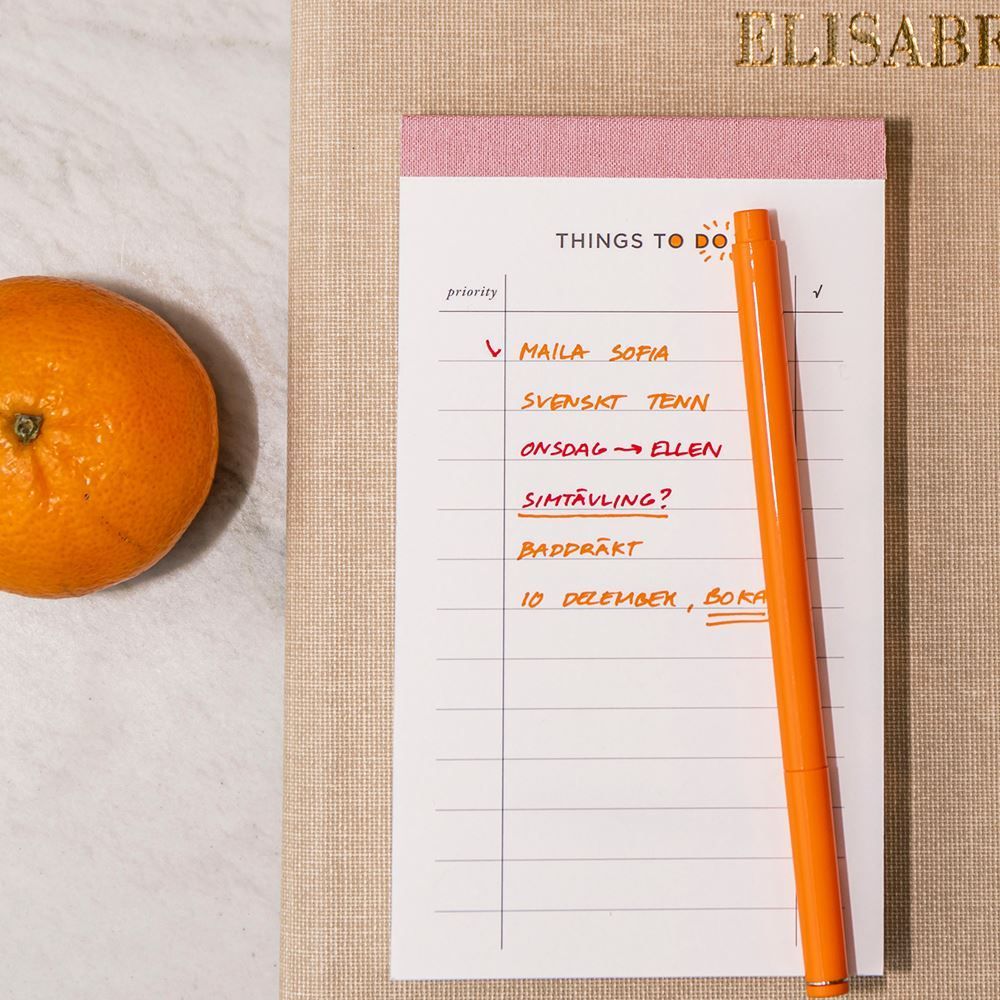 ELISABE
THINGS TO DO
priority √
MAILA SOFIA
SVENSKT TENN
ONSDAG → ELLEN
SIMTÄVLING?
BADDRÄKT
10 DEZEMBER, BOKA